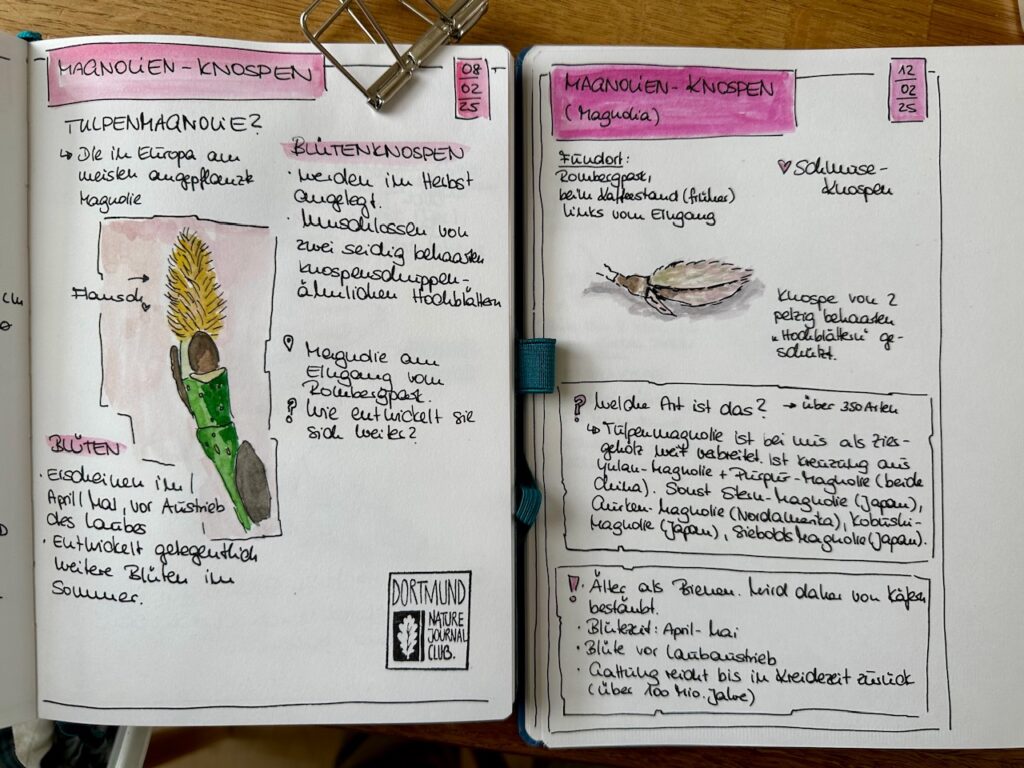 MAGNOLIEN-KNOSPEN
08
02
25
TULPENMAGNOLIE?
↳ Die in Europa am
meisten angepflanzte
Magnolie
Flausch
BLÜTENKNOSPEN
· werden im Herbst
angelegt.
· Umschlossen von
zwei seidig behaarten
knospenschuppen-
ähnlichen Hochblättern
Magnolie am
Eingang vom
Rombergpark.
? Wie entwickelt sie
sich weiter?
BLÜTEN
· Erscheinen im
April/Mai, vor Austrieb
des Laubes
· Entwickelt gelegentlich
weitere Blüten im
Sommer.
DORTMUND
NATURE
JOURNAL
CLUB.
MAGNOLIEN-KNOSPEN
(Magnolia)
12
02
25
Fundort:
Rombergpark,
beim Kaffeestand (früher)
links vom Eingang
♥ Schmuse-
knospen
Knospe von 2
pelzig behaarten
"Hochblättern" ge-
schützt.
? Welche Art ist das? → über 350 Arten
↳ Tulpenmagnolie ist bei uns als Zier-
gehölz weit verbreitet. Ist Kreuzung aus
Yulan-Magnolie + Purpur-Magnolie (beide
China). Sonst Stern-Magnolie (Japan),
Gurken-Magnolie (Nordamerika), Kobushi-
Magnolie (Japan), Siebolds Magnolie (Japan).
! · Älter als Bienen. Wird daher von Käfern
bestäubt.
· Blütezeit: April-Mai
· Blüte vor Laubaustrieb
· Gattung reicht bis in Kreidezeit zurück
(über 100 Mio. Jahre)